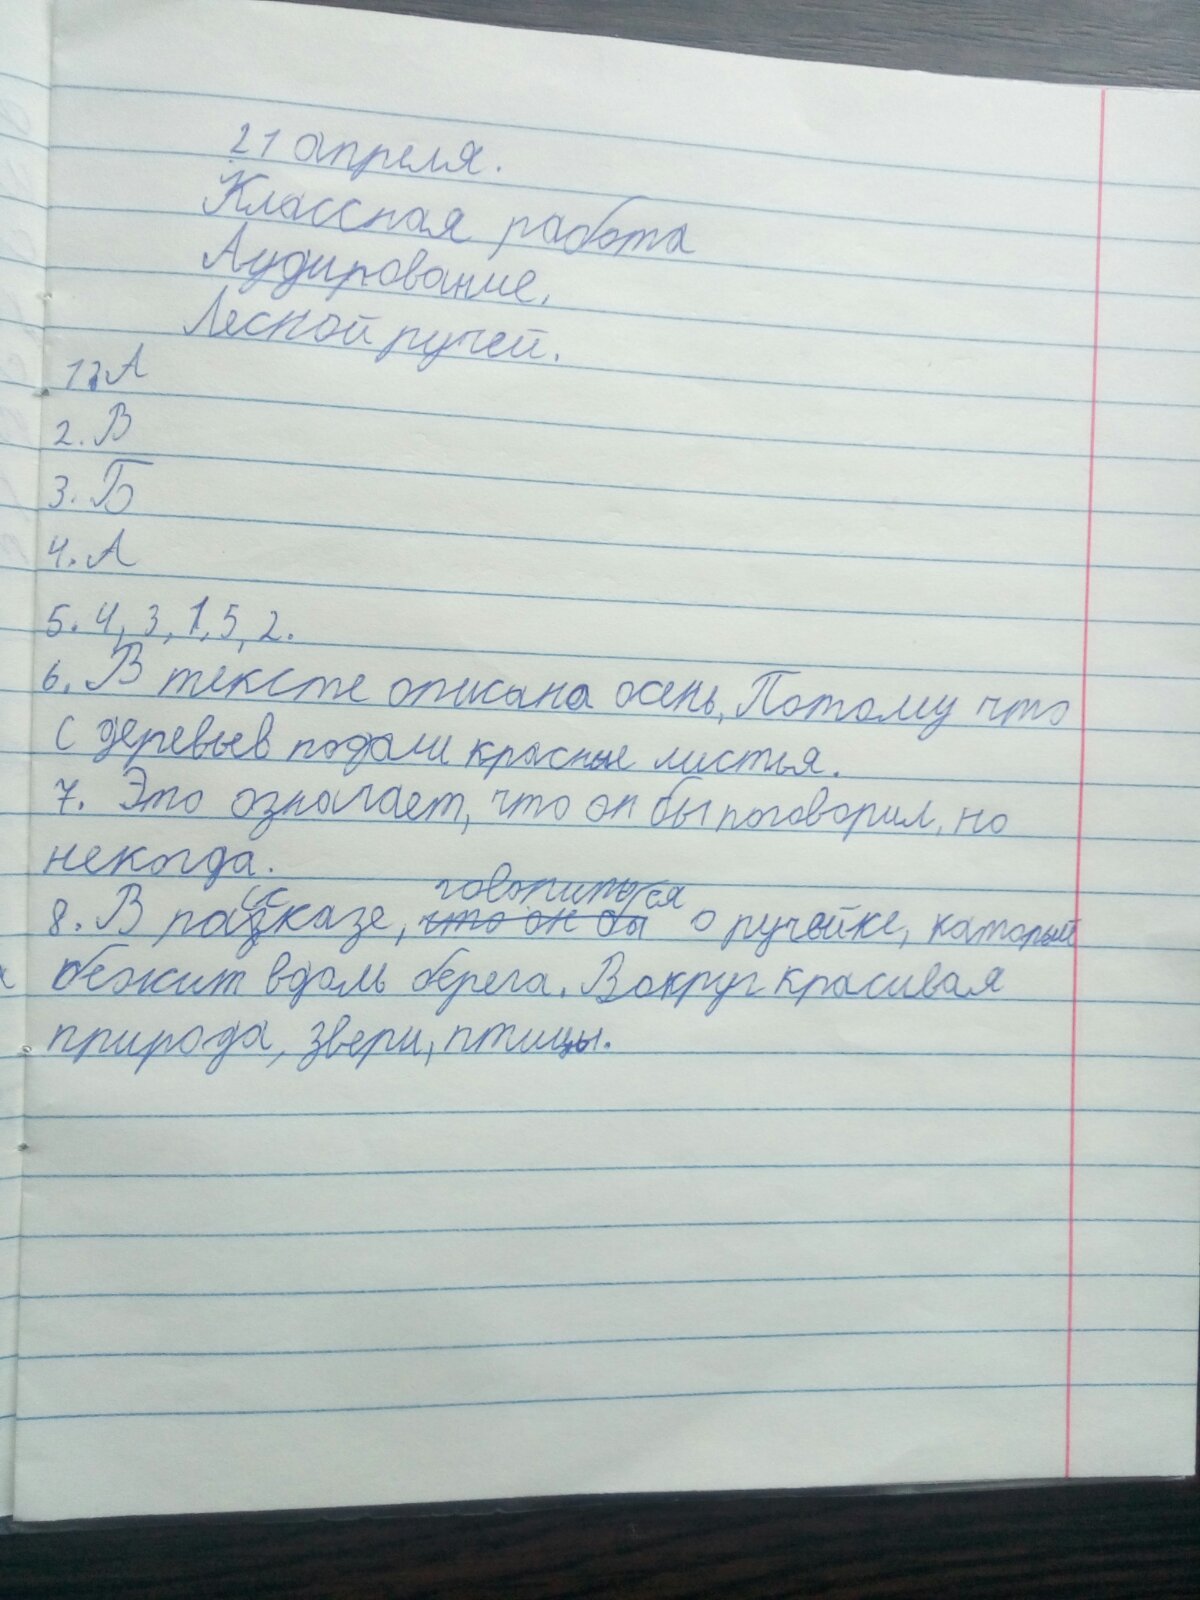 21 апреля.
Классная работа
Аудирование.
Лесной ручей.
1. А
2. В
3. Б
4. А
5. 4, 3, 1, 5, 2.
6. В тексте описана осень, Потому что
с деревьев подали красные листья.
7. Это означает, что он бы поговорил, но
некогда.
говориться
8. В рассказе, что он бы о ручейке, каторый
бежит вдоль берега. Вокруг красивая
природа, звери, птицы.